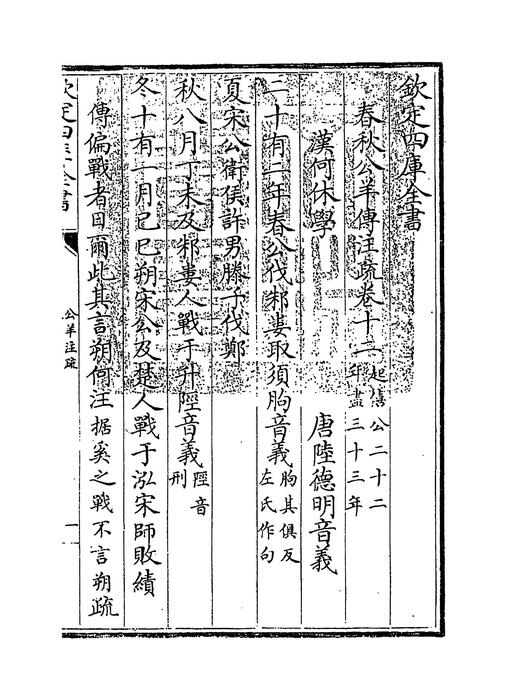 欽定四庫全書
春秋公羊傳注疏卷十二起僖公二十二年盡三十三年
漢何休學 唐陸德明音義
二十有二年春公伐邾婁取須朐音義朐其俱反左氏作句
夏宋公衛侯許男滕子伐鄭
秋八月丁未及邾婁人戰于升陘音義陘音刑
冬十有一月己巳朔宋公及楚人戰于泓宋師敗績
傳偏戰者日爾此其言朔何注據奚之戰不言朔疏
欽定四庫全書
公羊注疏
一